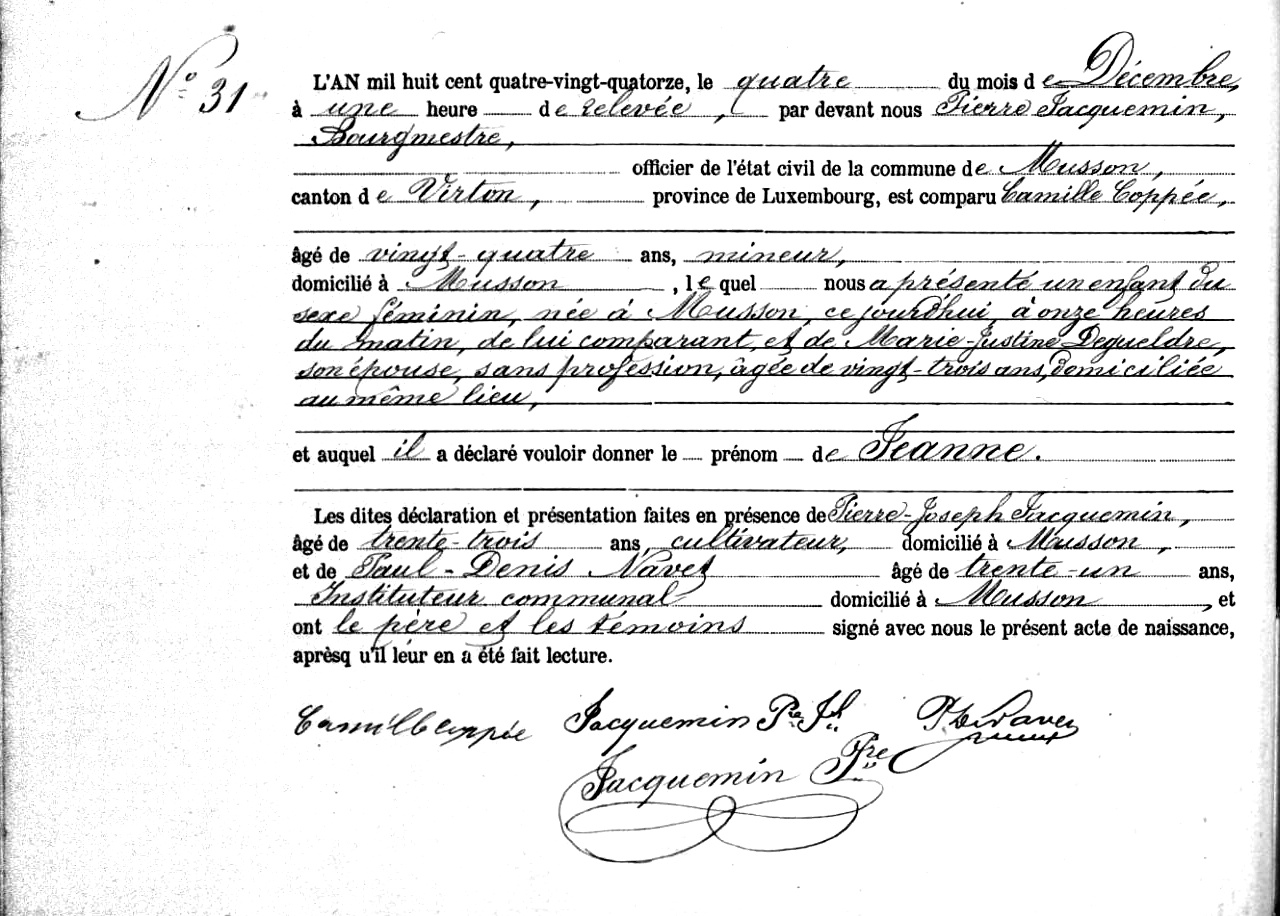 N° 31
L'AN mil huit cent quatre-vingt-quatorze, le quatre du mois de Décembre,
à une heure de relevée, par devant nous Pierre Jacquemin,
Bourgmestre,
officier de l'état civil de la commune de Musson,
canton de Virton, province de Luxembourg, est comparu Camille Coppée,
âgé de vingt-quatre ans, mineur,
domicilié à Musson, lequel nous a présenté un enfant du
sexe féminin, née à Musson, cejourd'hui, à onze heures
du matin, de lui comparant, et de Marie-Justine Degueldre,
son épouse, sans profession, âgée de vingt-trois ans, domiciliée
au même lieu,
et auquel il a déclaré vouloir donner le prénom de Jeanne.
Les dites déclaration et présentation faites en présence de Pierre-Joseph Jacquemin,
âgé de trente-trois ans, cultivateur, domicilié à Musson,
et de Paul-Denis Navez âgé de trente-un ans,
Instituteur communal domicilié à Musson, et
ont le père et les témoins signé avec nous le présent acte de naissance,
aprèsq u'il leur en a été fait lecture.
Camille Coppée Jacquemin Pre Jh P. D. Navez
Jacquemin Pre